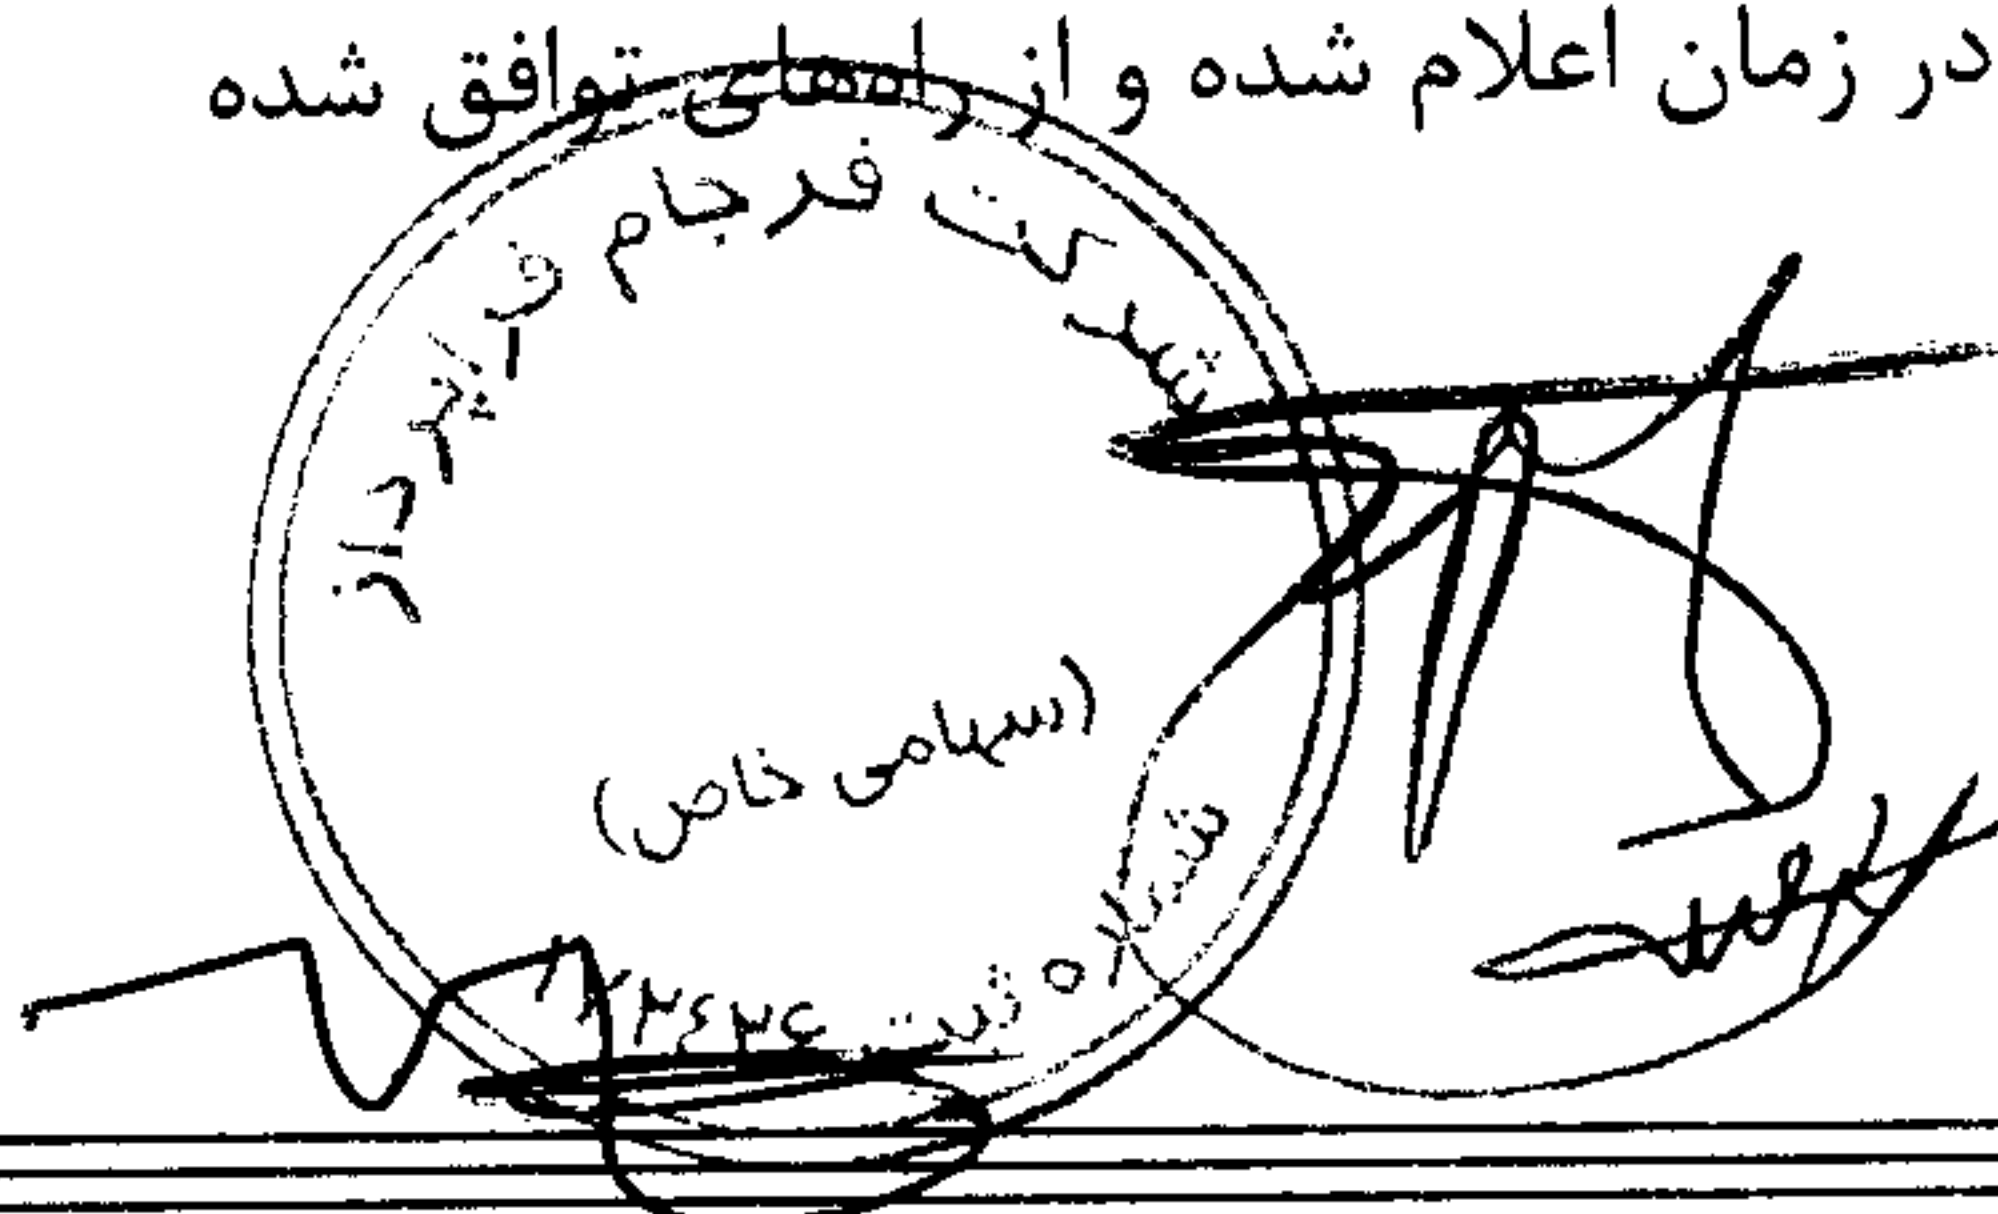 در زمان اعلام شده و از راههای توافق شده
شرکت فرجام فراپرداز
(سهامی خاص)
شماره ثبت